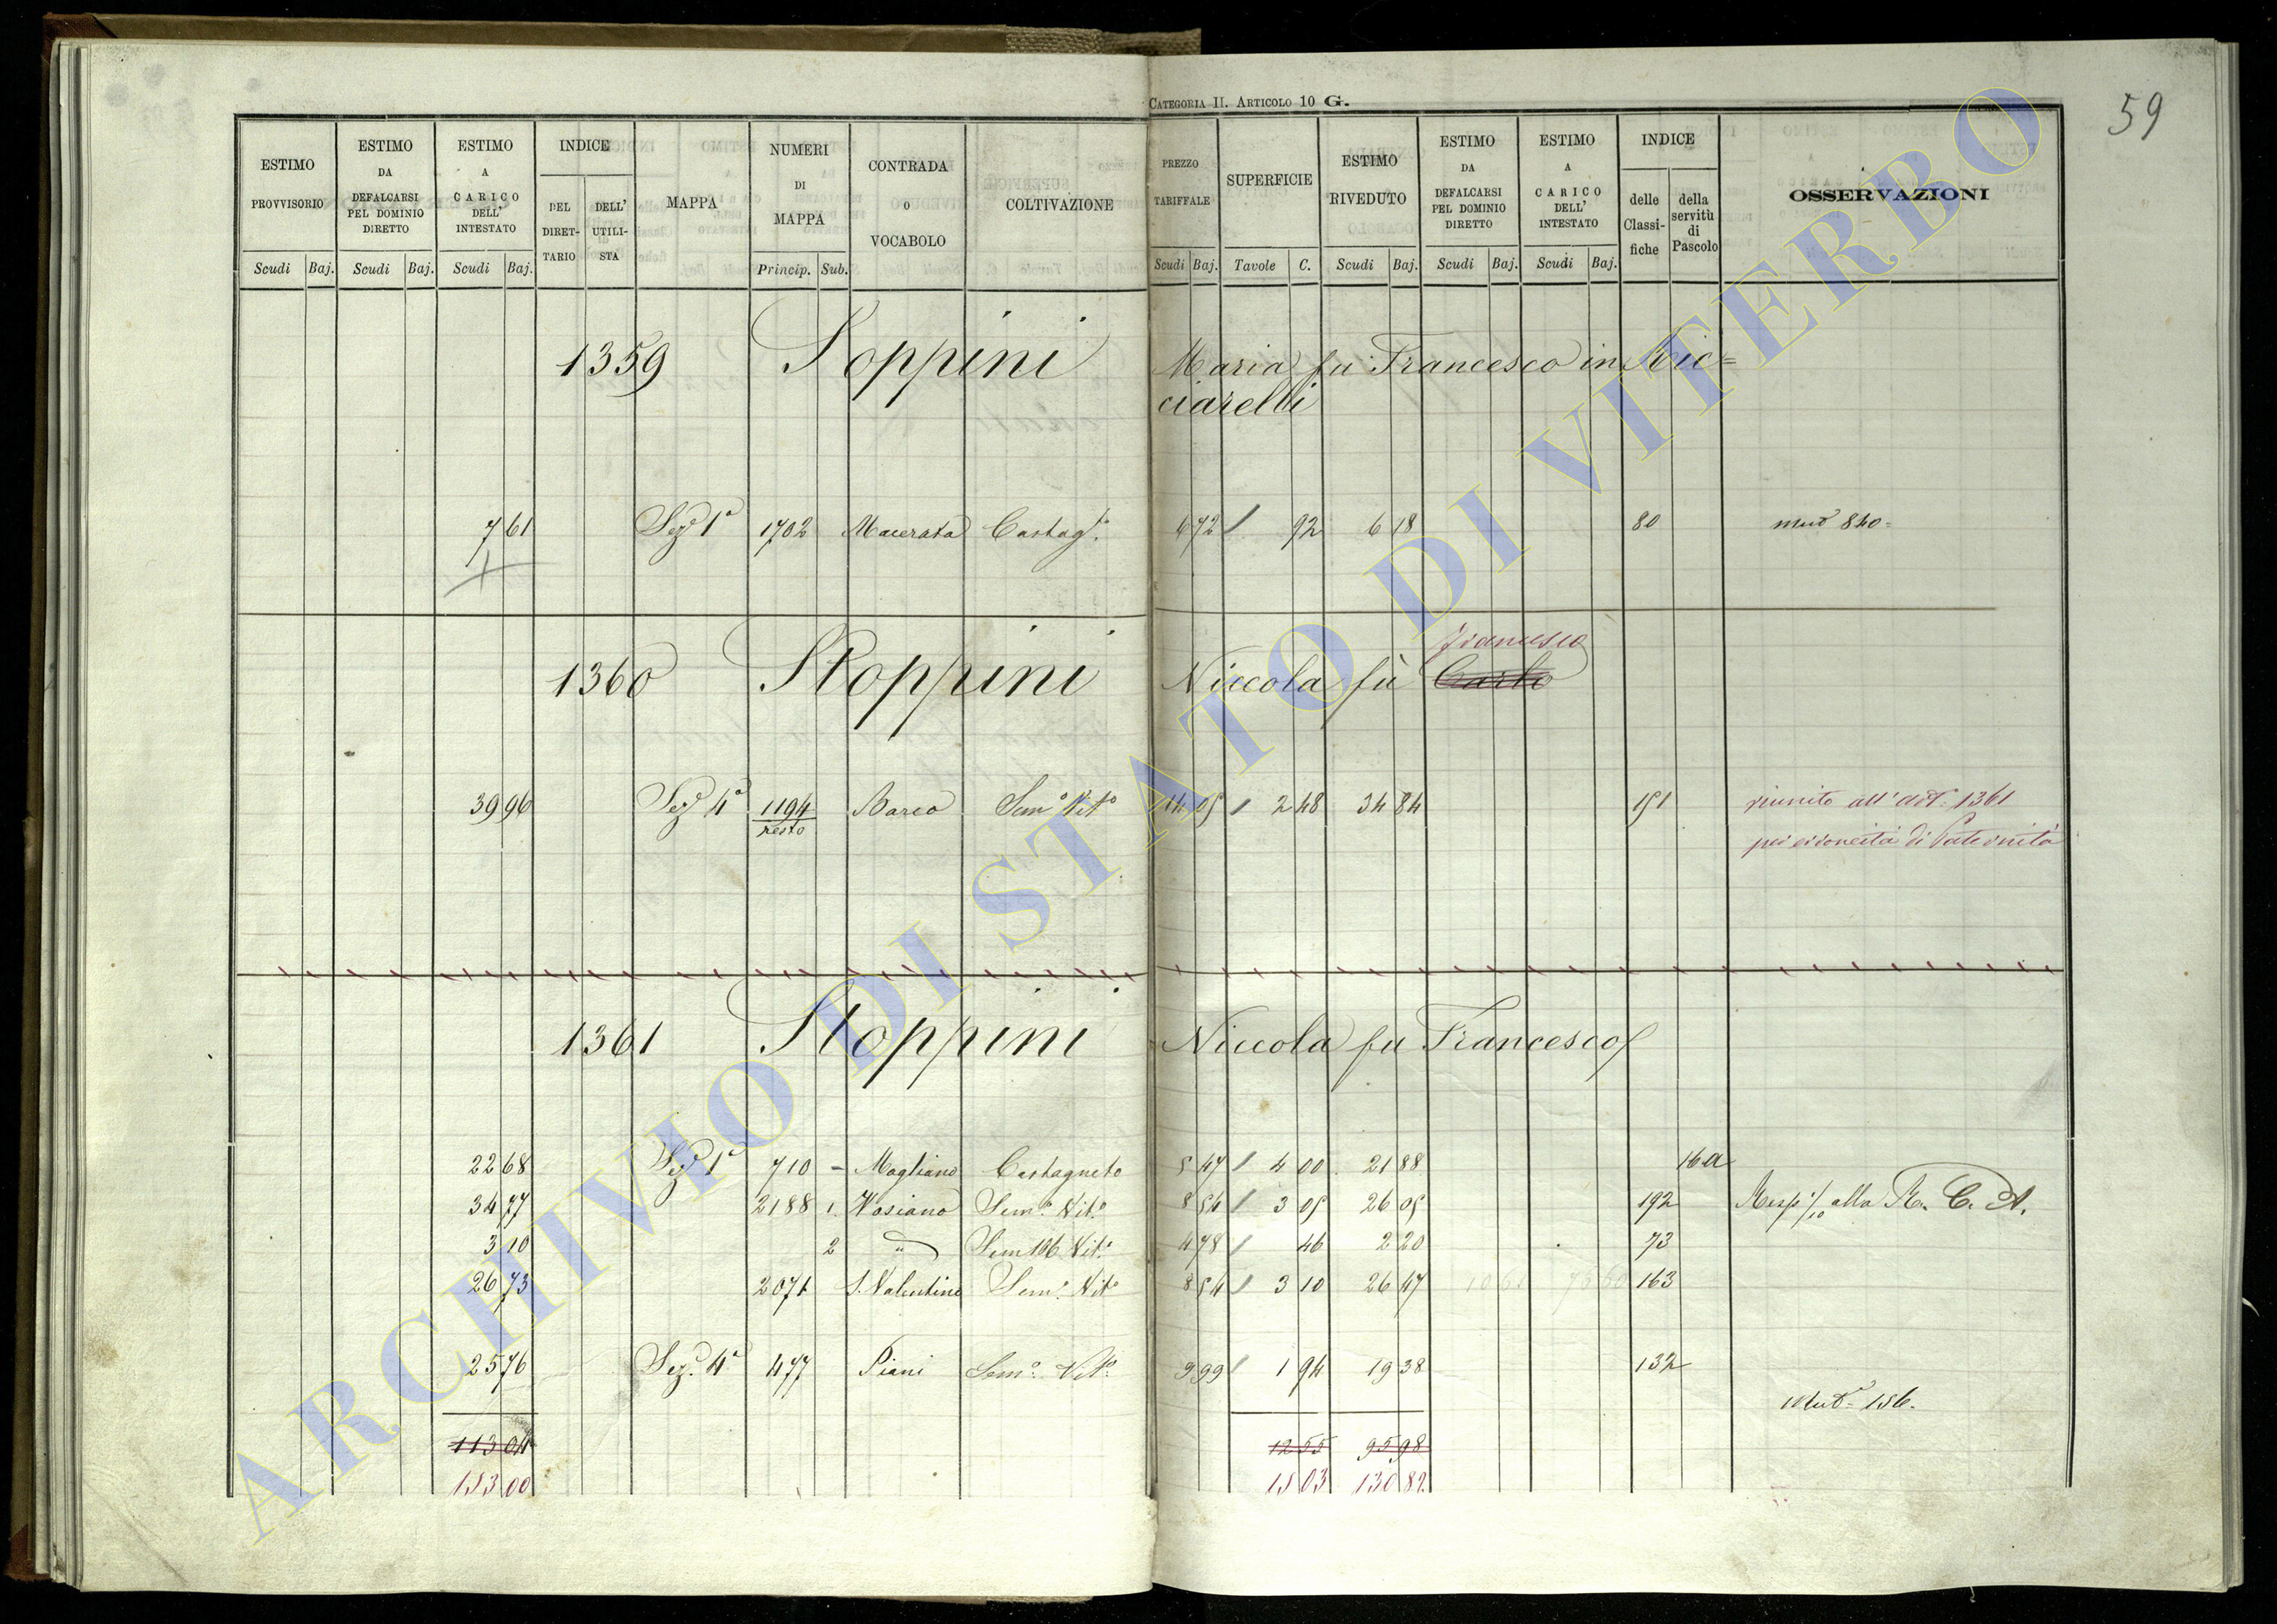 CATEGORIA II. ARTICOLO 10 G.
59
ESTIMO PROVVISORIO
ESTIMO DA DEFALCARSI PEL DOMINIO DIRETTO
ESTIMO A CARICO DELL' INTESTATO
INDICE
DEL DIRETTARIO
DELL' UTILISTA
MAPPA
NUMERI DI MAPPA
CONTRADA O VOCABOLO
COLTIVAZIONE
PREZZO TARIFFALE
SUPERFICIE
ESTIMO RIVEDUTO
ESTIMO DA DEFALCARSI PEL DOMINIO DIRETTO
ESTIMO A CARICO DELL' INTESTATO
INDICE
delle Classifiche
della servitù di Pascolo
OSSERVAZIONI
Scudi Baj. Scudi Baj. Scudi Baj. Princip. Sub. Scudi Baj. Tavole C. Scudi Baj. Scudi Baj. Scudi Baj.
1359 Stoppini Maria fu Francesco in Ric=
ciarelli
7 61 Sez.e 1a 1702 Macerata Castag.o 6 72 / 92 6 18 80 mut.a 840
Francesco
1360 Stoppini Niccola fù Carlo
39 96 Sez.e 4a 1194 resto Barco Sem.o Vit.o 14 05 / 2 48 34 84 151 riunito all'art. 1361
per erroneità di Paternità
1361 Stoppini Niccola fu Francesco
22 68 Sez.e 1a 710 - Mogliano Castagneto 5 47 / 4 00 21 88 16a
34 77 2188 1. Sem.o Vit.o 8 54 / 3 05 26 05 192 Risp 1/10 alla R. C. A.
3 10 2 " Sem Vit.o 4 78 / 46 2 20 73
26 73 2071 S. Valentino Sem.o Vit.o 8 54 / 3 10 26 47 163
25 76 Sez.e 4a 477 Piani Sem.o Vit.o 9 99 / 1 94 19 38 132
Mut.a 156.
113 04 12 55 95 98
153 00 15 03 130 82
ARCHIVIO DI STATO DI VITERBO